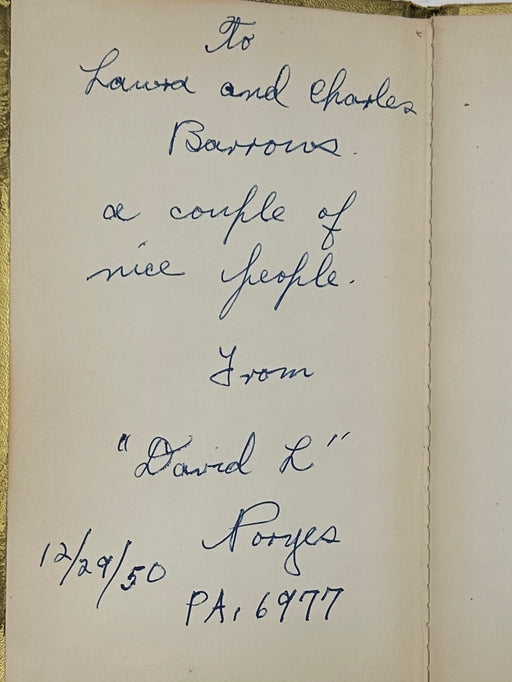 To
Laura and Charles
Barrows.
a couple of
nice people.
From
"David L"
Noryes
12/29/50
PA, 6977